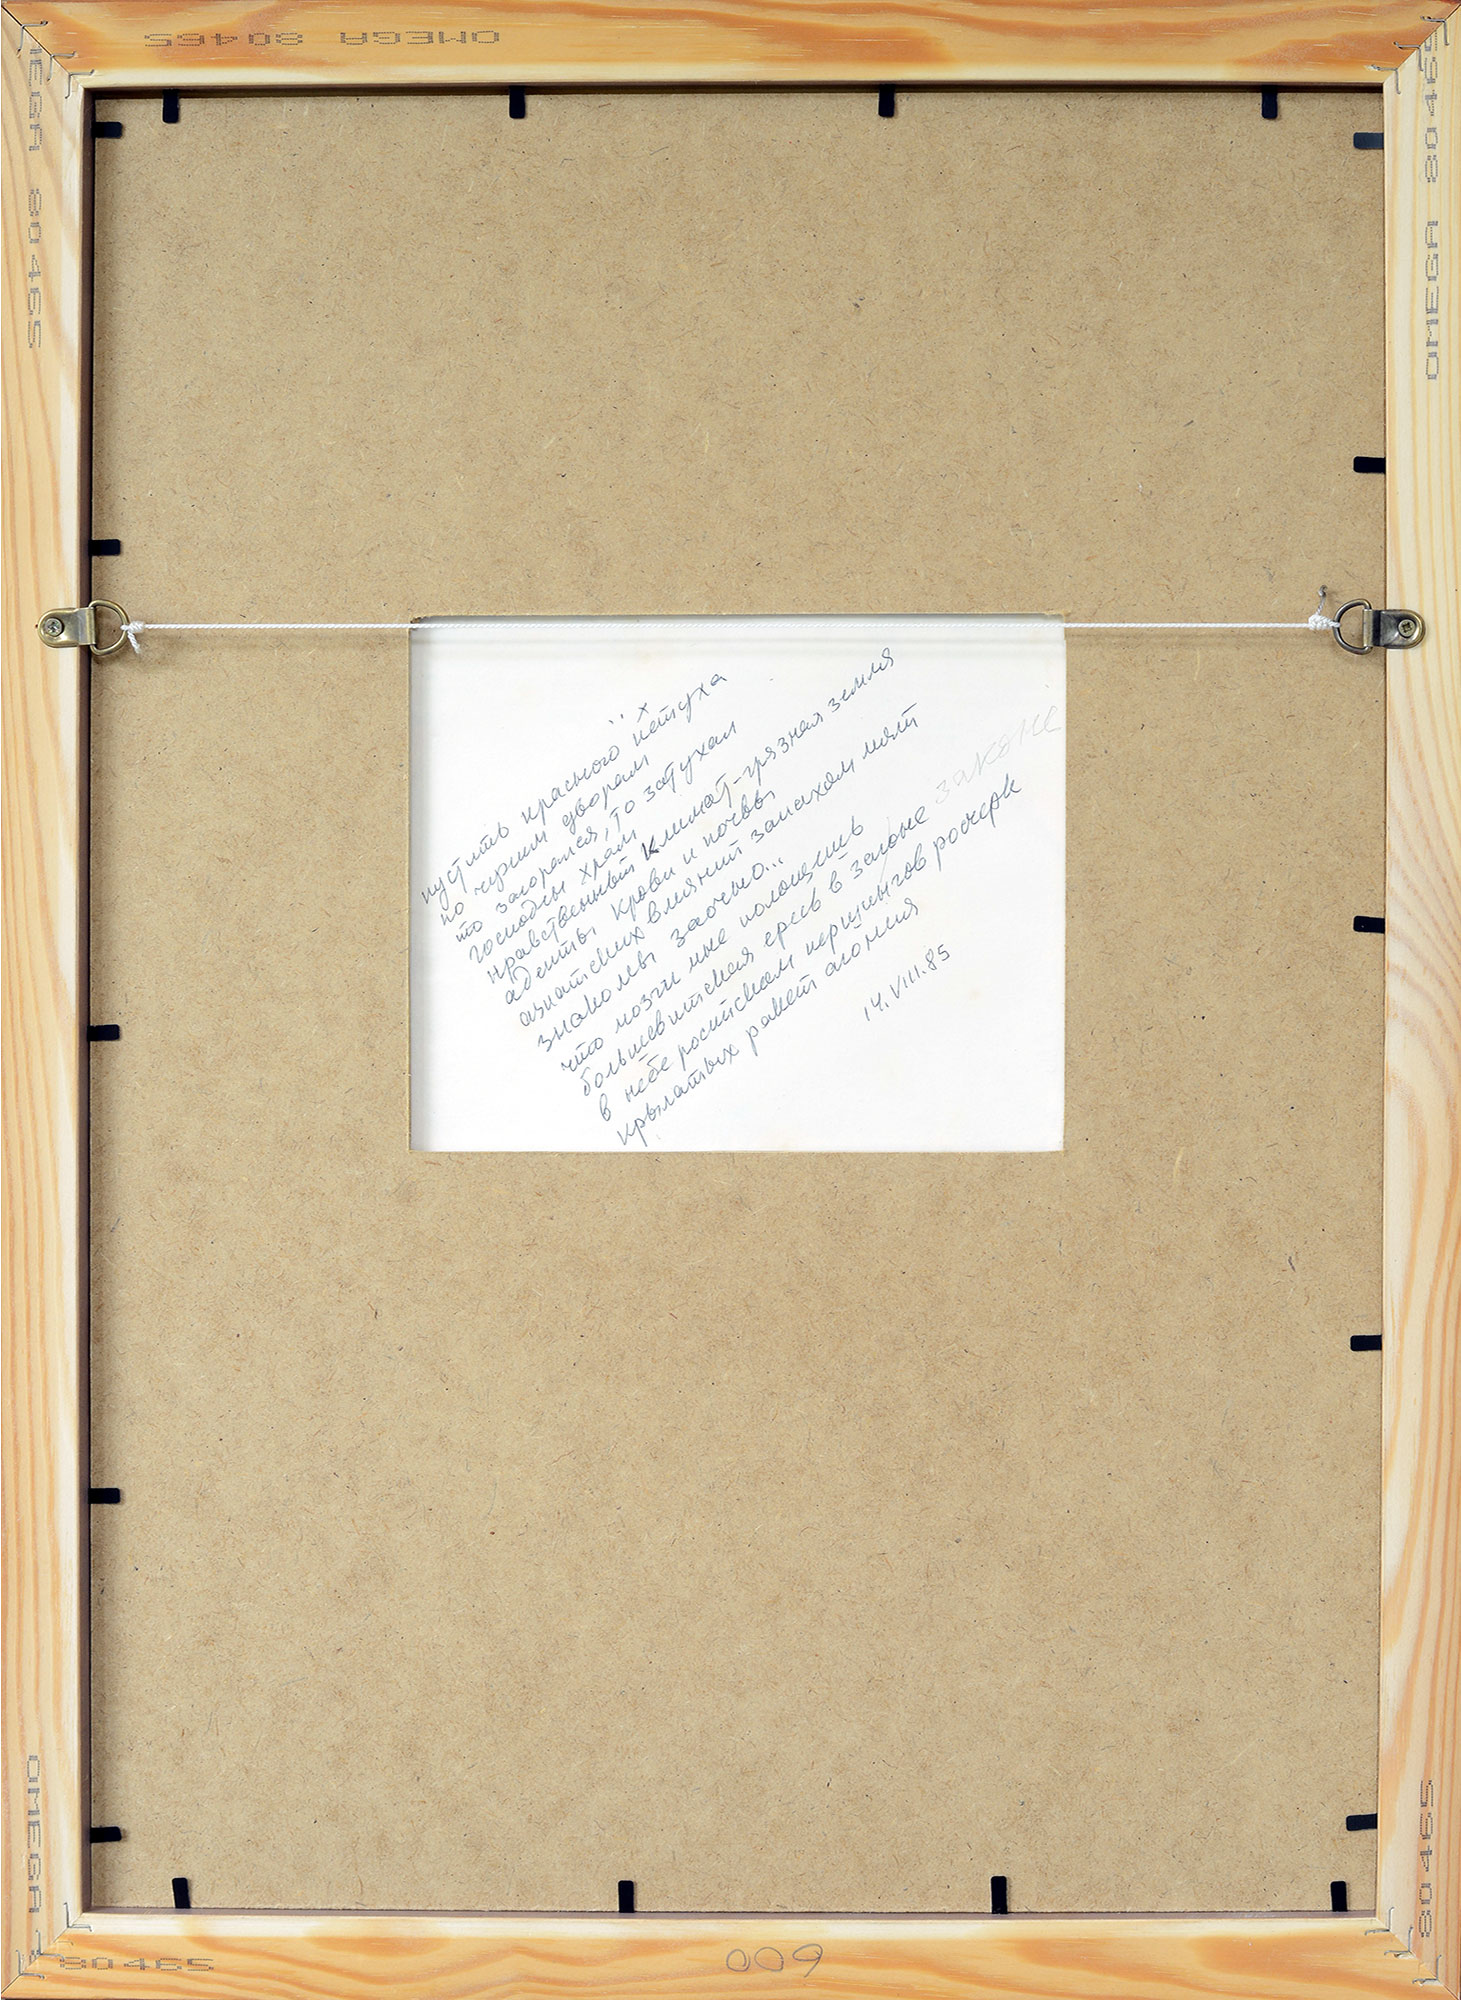 OMEGA 80465
OMEGA 80465
80465
OMEGA
пустить красного петуха
по чужим дворам
то загорался, то затухал
господен храм
нравственный климат-грязная земля
адепты крови и почвы
азиатских влияний запахом
знакомы заочно...
что мозги мне полощешь
большевитская ересь в загоне законе
в небе российском першингов росчерк
крылатых ракет агония
14.VIII.85
OMEGA
80465
80465
009